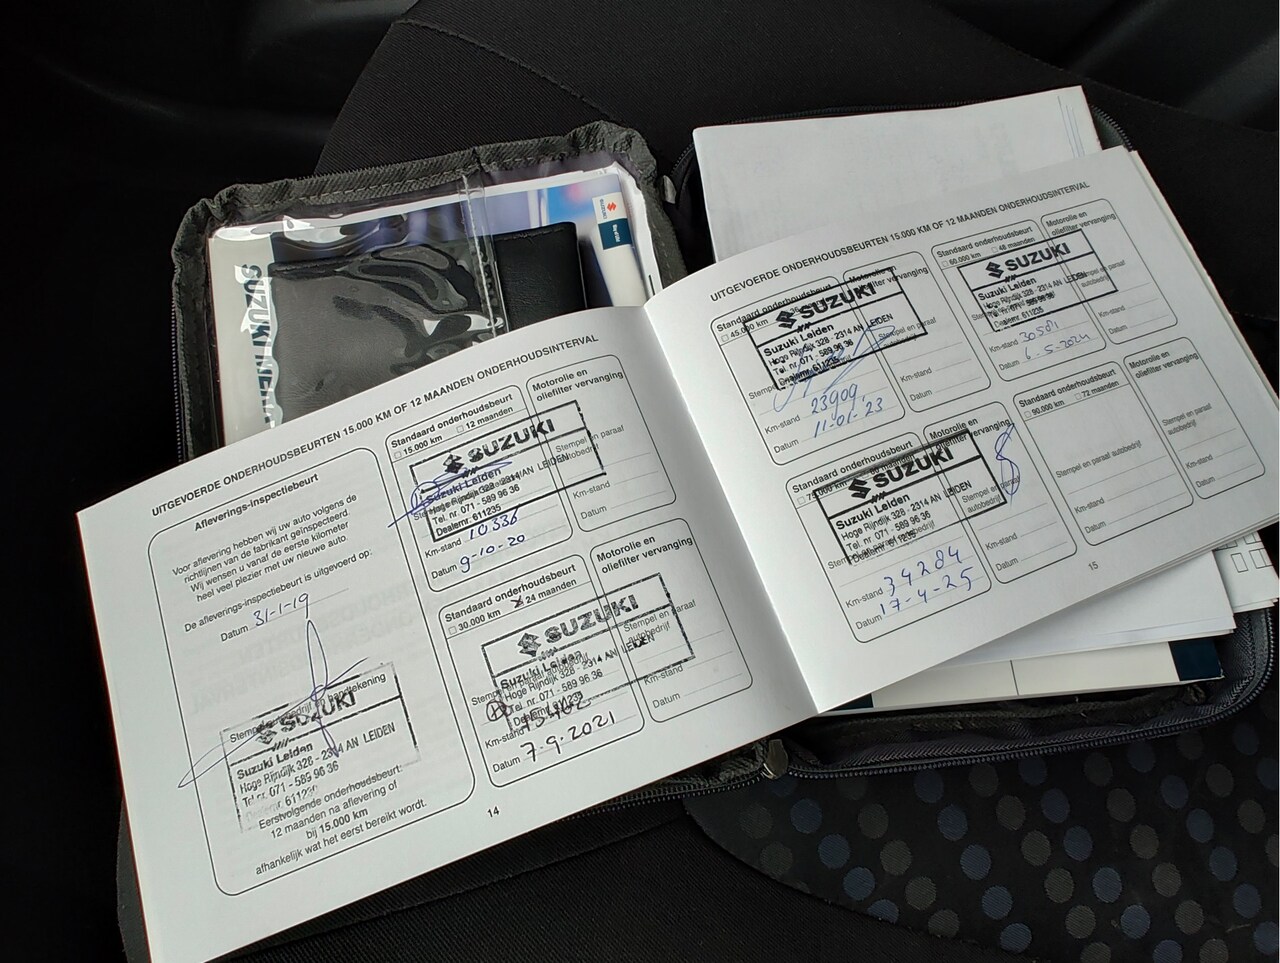 SUZUKI
UITGEVOERDE ONDERHOUDSBEURTEN 15.000 KM OF 12 MAANDEN ONDERHOUDSINTERVAL
Afleverings-inspectiebeurt
Voor aflevering hebben wij uw auto volgens de
richtlijnen van de fabrikant geïnspecteerd.
Wij wensen u vanaf de eerste kilometer
heel veel plezier met uw nieuwe auto.
De afleverings-inspectiebeurt is uitgevoerd op:
Datum 31-1-19
handtekening
SUZUKI
Suzuki Leiden
Hoge Rijndijk 328 - 2314 AN LEIDEN
Tel. nr. 071 - 589 96 36
Dealernr. 611235
Eerstvolgende onderhoudsbeurt:
12 maanden na aflevering of
bij 15.000 km
afhankelijk wat het eerst bereikt wordt.
Standaard onderhoudsbeurt
15.000 km 12 maanden
SUZUKI
Suzuki Leiden
Hoge Rijndijk 328 - 2314 AN LEIDEN
Tel. nr. 071 - 589 96 36
Dealernr. 611235
Km-stand 10336
Datum 9-10-20
Motorolie en
oliefilter vervanging
Stempel en paraaf
autobedrijf
Km-stand
Datum
Standaard onderhoudsbeurt
30.000 km 24 maanden
SUZUKI
Suzuki Leiden
Hoge Rijndijk 328 - 2314 AN LEIDEN
Tel. nr. 071 - 589 96 36
Dealernr. 611235
Km-stand
Datum 7-9-2021
Motorolie en
oliefilter vervanging
Stempel en paraaf
autobedrijf
Km-stand
Datum
14
UITGEVOERDE ONDERHOUDSBEURTEN 15.000 KM OF 12 MAANDEN ONDERHOUDSINTERVAL
Standaard onderhoudsbeurt
45.000 km
SUZUKI
Suzuki Leiden
Hoge Rijndijk 328 - 2314 AN LEIDEN
Tel. nr. 071 - 589 96 36
Dealernr. 611235
Km-stand 23909
Datum 11-01-23
Motorolie en
oliefilter vervanging
Stempel en paraaf
Km-stand
Datum
Standaard onderhoudsbeurt
60.000 km 48 maanden
SUZUKI
Suzuki Leiden
Hoge Rijndijk 328 - 2314 AN LEIDEN
Tel. nr. 071 - 589 96 36
Dealernr. 611235
Km-stand 30581
Datum 6-5-2024
Motorolie en
oliefilter vervanging
Stempel en paraaf
autobedrijf
Km-stand
Datum
Standaard onderhoudsbeurt
75.000 km maanden
SUZUKI
Suzuki Leiden
Hoge Rijndijk 328 - 2314 AN LEIDEN
Tel. nr. 071 - 589 96 36
Dealernr. 611235
Km-stand 34284
Datum 17-4-25
Motorolie en
oliefilter vervanging
Stempel en paraaf
Km-stand
Datum
Standaard onderhoudsbeurt
90.000 km 72 maanden
Stempel en paraaf autobedrijf
Km-stand
Datum
Motorolie en
oliefilter vervanging
Stempel en paraaf
autobedrijf
Km-stand
Datum
15